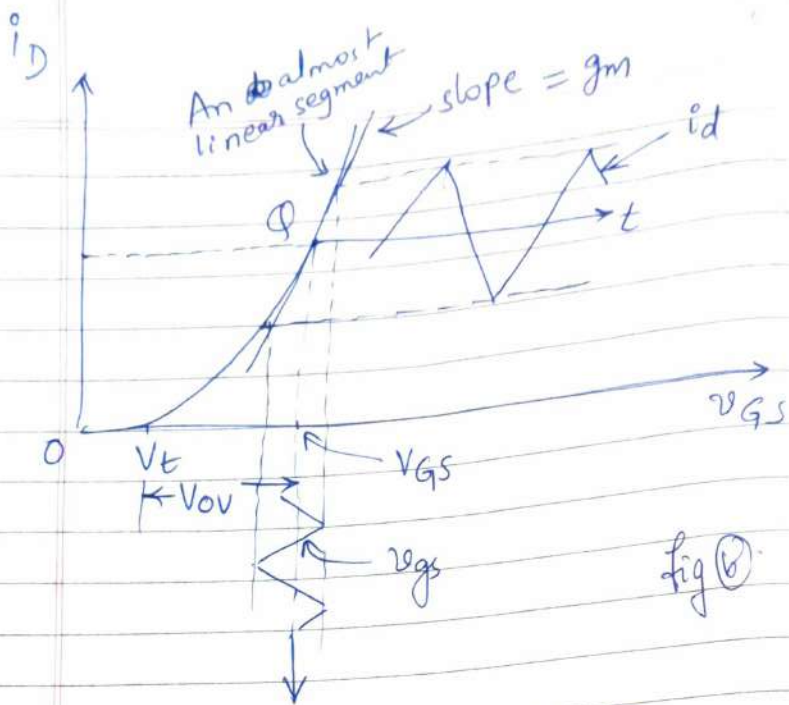 iD
An almost
linear segment
slope = gm
id
Q
t
vGS
O
Vt
VGS
Vov
vgs
fig (b).